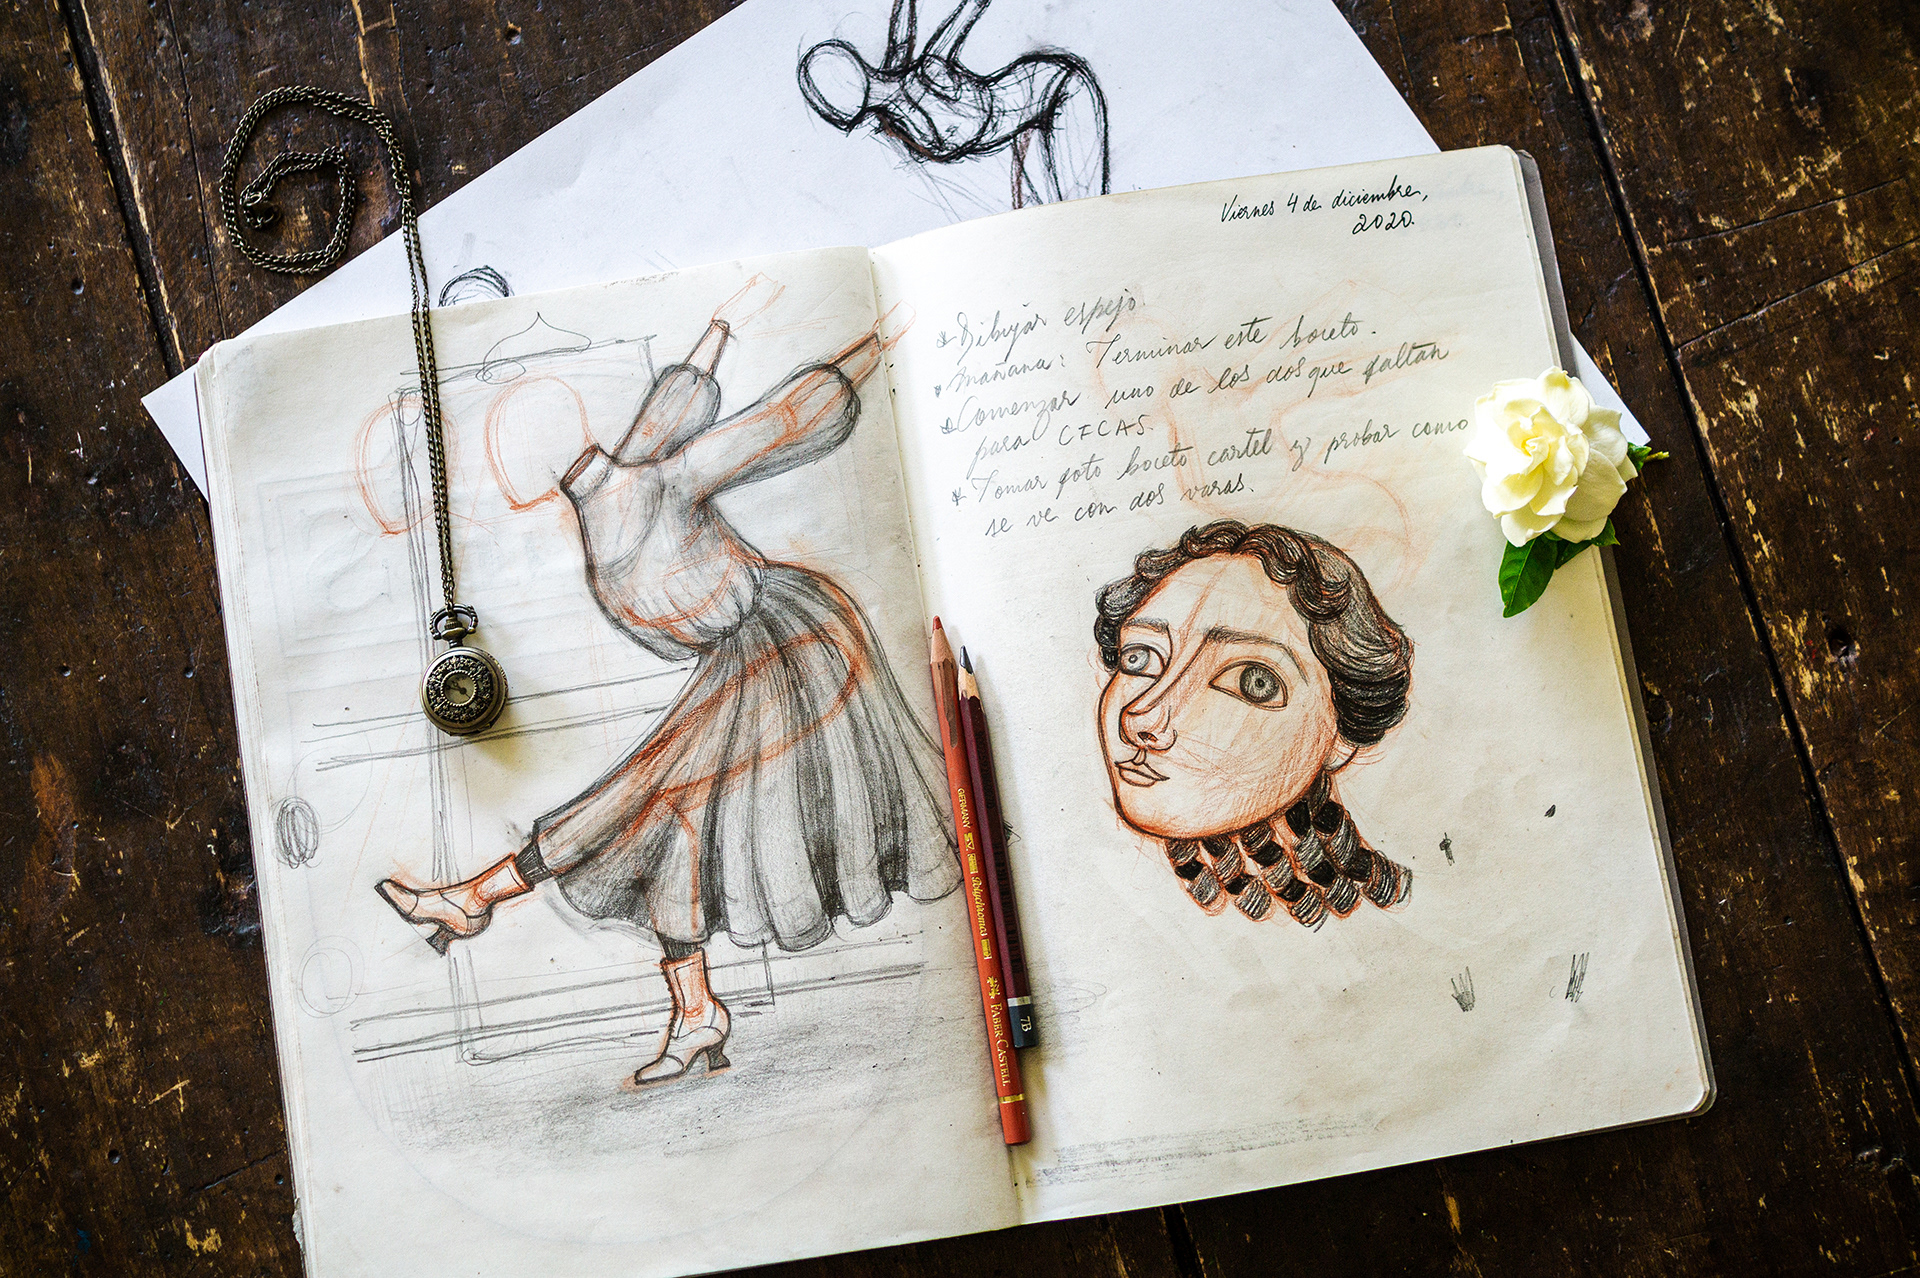 Viernes 4 de diciembre,
2020.
* Dibujar espejo
* Mañana: Terminar este boceto.
* Comenzar uno de los dos que faltan
para CFCAS.
* Tomar foto boceto cartel y probar como
se ve con dos varas.
GERMANY
Polychromos
FABER-CASTELL
7B